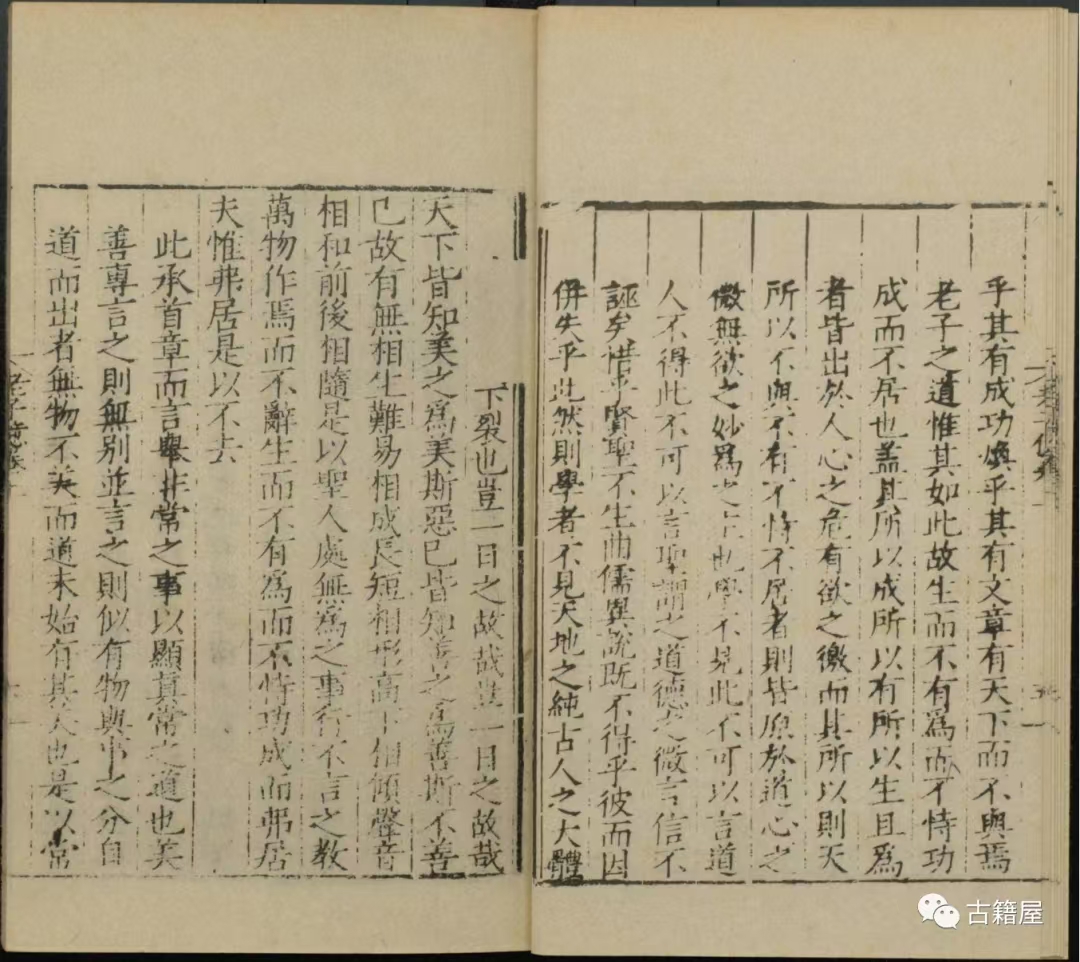 乎其有成功煥乎其有文章有天下而不與焉
老子之道惟其如此故生而不有爲而不恃功
成而不居也盖其所以成所以有所以生且爲
者皆出於人心之危有欲之徼而其所以則天
所以不與不有不恃不居者則皆原於道心之
微無欲之妙爲之主也學不見此不可以言道
人不得此不可以言聖謂之道德之微言信不
誣矣惜乎賢聖不生曲儒異說既不得乎彼而因
併失乎此然則學者不見天地之純古人之大體
下裂也豈一日之故哉豈一日之故哉
天下皆知美之爲美斯惡已皆知善之爲善斯不善
已故有無相生難易相成長短相形高下相傾聲音
相和前後相隨是以聖人處無爲之事行不言之教
萬物作焉而不辭生而不有爲而不恃功成而弗居
夫惟弗居是以不去
此承首章而言舉非常之事以顯真常之道也美
善專言之則無别並言之則似有物與事之分自
道而出者無物不美而道未始有其美也是以常
古籍屋